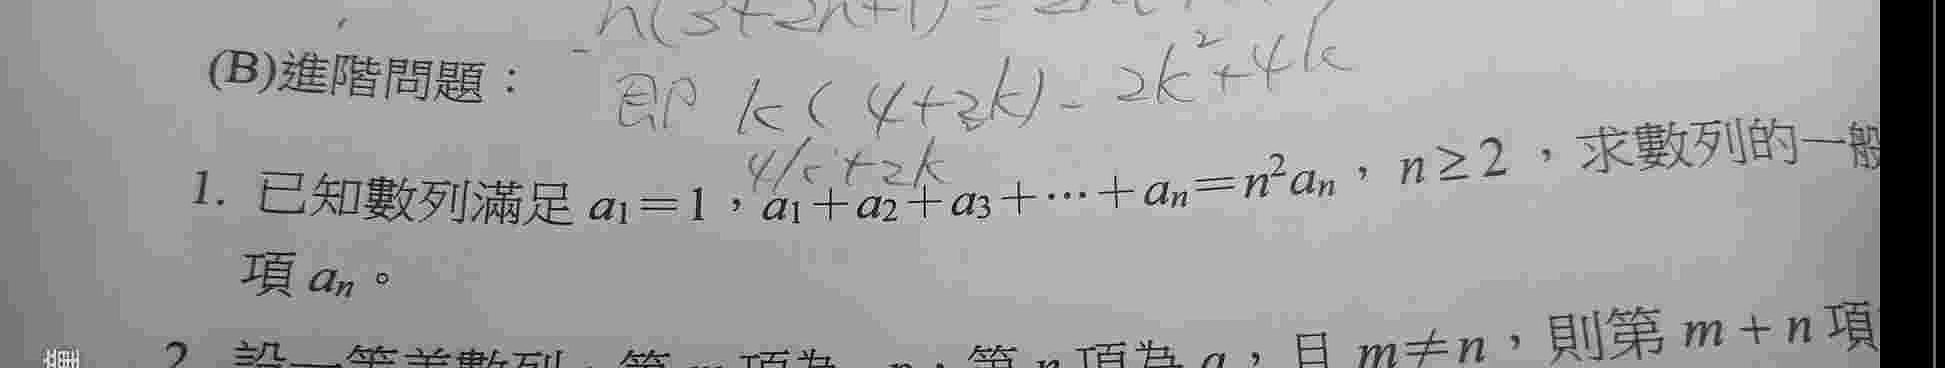 n(3+2n+1) =
(B)進階問題：
即 k(4+2k) = 2k²+4k
4k+2k
1. 已知數列滿足 a₁=1，a₁+a₂+a₃+⋯+aₙ=n²aₙ，n≥2，求數列的一般
項 aₙ。
2. 設一等差數列，第 項為 ，第 n 項為 ，且 m≠n，則第 m+n 項